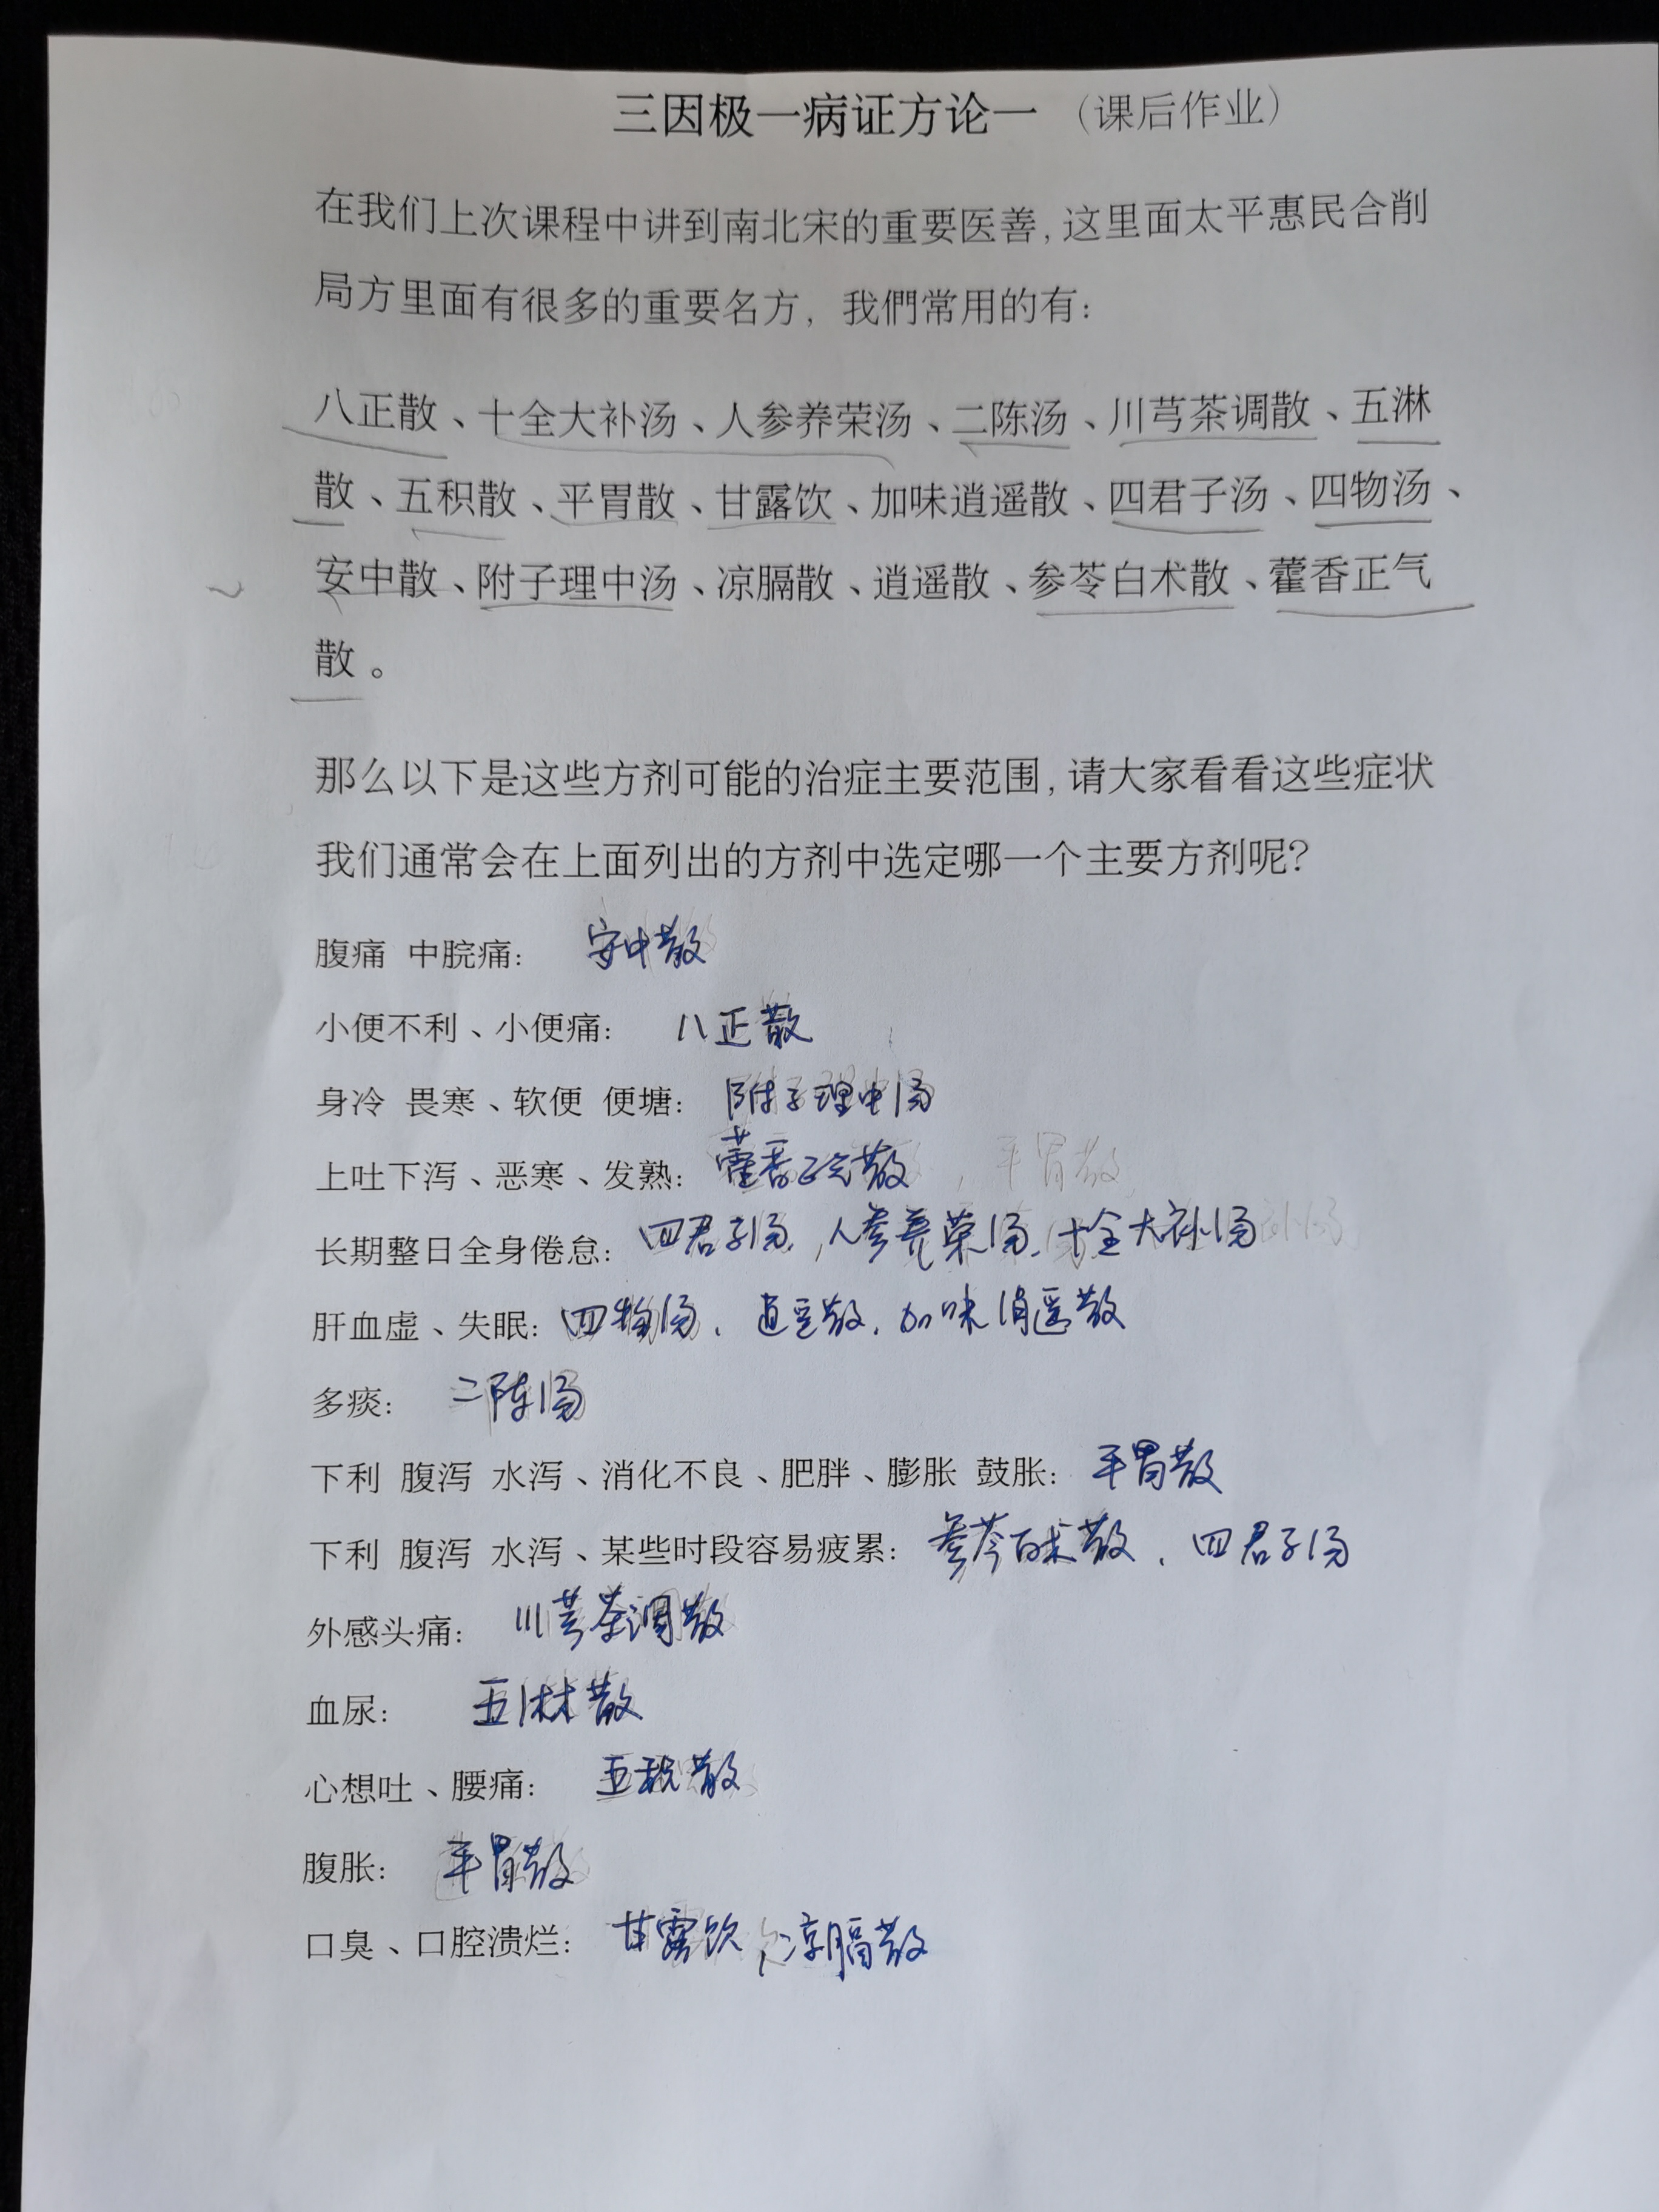 三因极一病证方论一 （课后作业）
在我们上次课程中讲到南北宋的重要医善，这里面太平惠民合削
局方里面有很多的重要名方，我們常用的有：
八正散、十全大补汤、人参养荣汤、二陈汤、川芎茶调散、五淋
散、五积散、平胃散、甘露饮、加味逍遥散、四君子汤、四物汤、
安中散、附子理中汤、凉膈散、逍遥散、参苓白术散、藿香正气
散。
那么以下是这些方剂可能的治症主要范围，请大家看看这些症状
我们通常会在上面列出的方剂中选定哪一个主要方剂呢？
腹痛 中脘痛： 安中散
小便不利、小便痛： 八正散
身冷 畏寒、软便 便塘： 附子理中汤
上吐下泻、恶寒、发熟： 藿香正气散，平胃散
长期整日全身倦怠： 四君子汤，人参养荣汤，十全大补汤
肝血虚、失眠： 四物汤，逍遥散，加味逍遥散
多痰： 二陈汤
下利 腹泻 水泻、消化不良、肥胖、膨胀 鼓胀： 平胃散
下利 腹泻 水泻、某些时段容易疲累： 参苓白术散，四君子汤
外感头痛： 川芎茶调散
血尿： 五淋散
心想吐、腰痛： 五积散
腹胀： 平胃散
口臭、口腔溃烂： 甘露饮，凉膈散